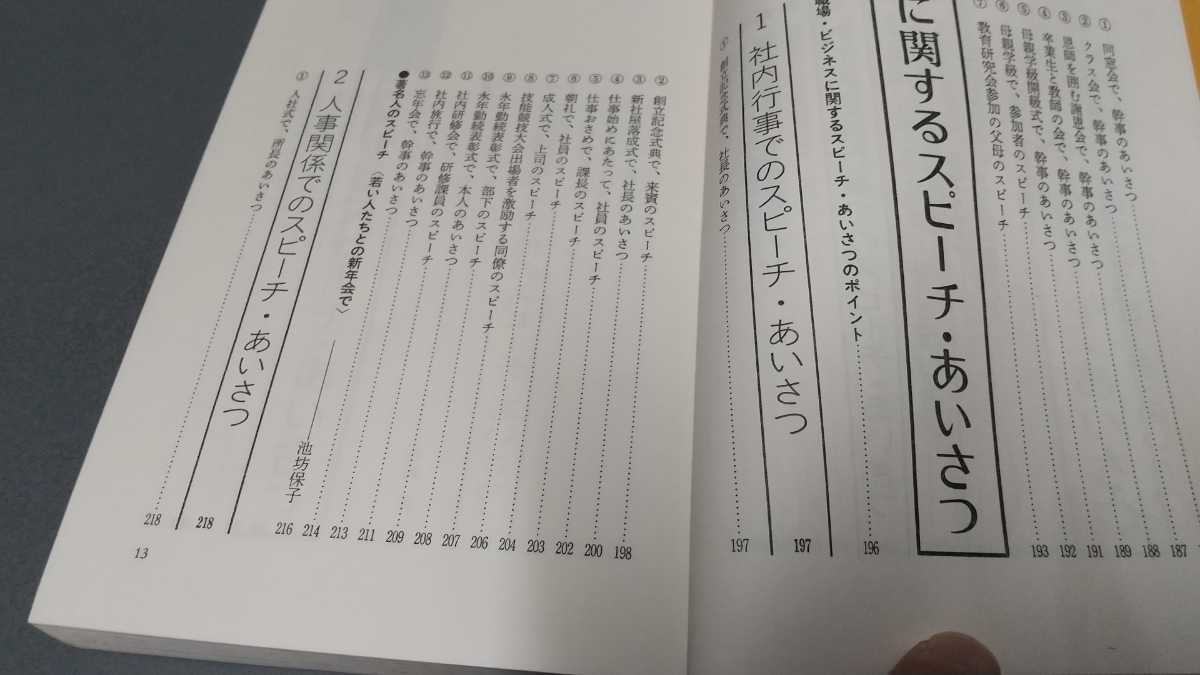 ① 同窓会で、幹事のあいさつ
② クラス会で、幹事のあいさつ 187
③ 恩師を囲む謝恩会で、幹事のあいさつ 188
④ 卒業生と教師の会で、幹事のあいさつ 189
⑤ 母親学級開級式で、幹事のあいさつ 191
⑥ 母親学級で、参加者のスピーチ 192
⑦ 教育研究会参加の父母のスピーチ 193
に関するスピーチ・あいさつ
職場・ビジネスに関するスピーチ・あいさつのポイント 196
1 社内行事でのスピーチ・あいさつ 197
① 創立記念式典で、社長のあいさつ 197
② 創立記念式典で、来賓のスピーチ 198
③ 新社屋落成式で、社長のあいさつ 200
④ 仕事始めにあたって、社員のスピーチ 202
⑤ 仕事おさめで、課長のスピーチ 203
⑥ 朝礼で、社員のスピーチ 204
⑦ 成人式で、上司のスピーチ 206
⑧ 技能競技大会出場者を激励する同僚のスピーチ 207
⑨ 永年勤続表彰式で、部下のスピーチ 208
⑩ 永年勤続表彰式で、本人のあいさつ 209
⑪ 社内研修会で、研修課員のスピーチ 211
⑫ 社内旅行で、幹事のあいさつ 213
⑬ 忘年会で、幹事のあいさつ 214
●著名人のスピーチ〈若い人たちとの新年会で〉――池坊保子 216
2 人事関係でのスピーチ・あいさつ 218
① 入社式で、所長のあいさつ 218
13